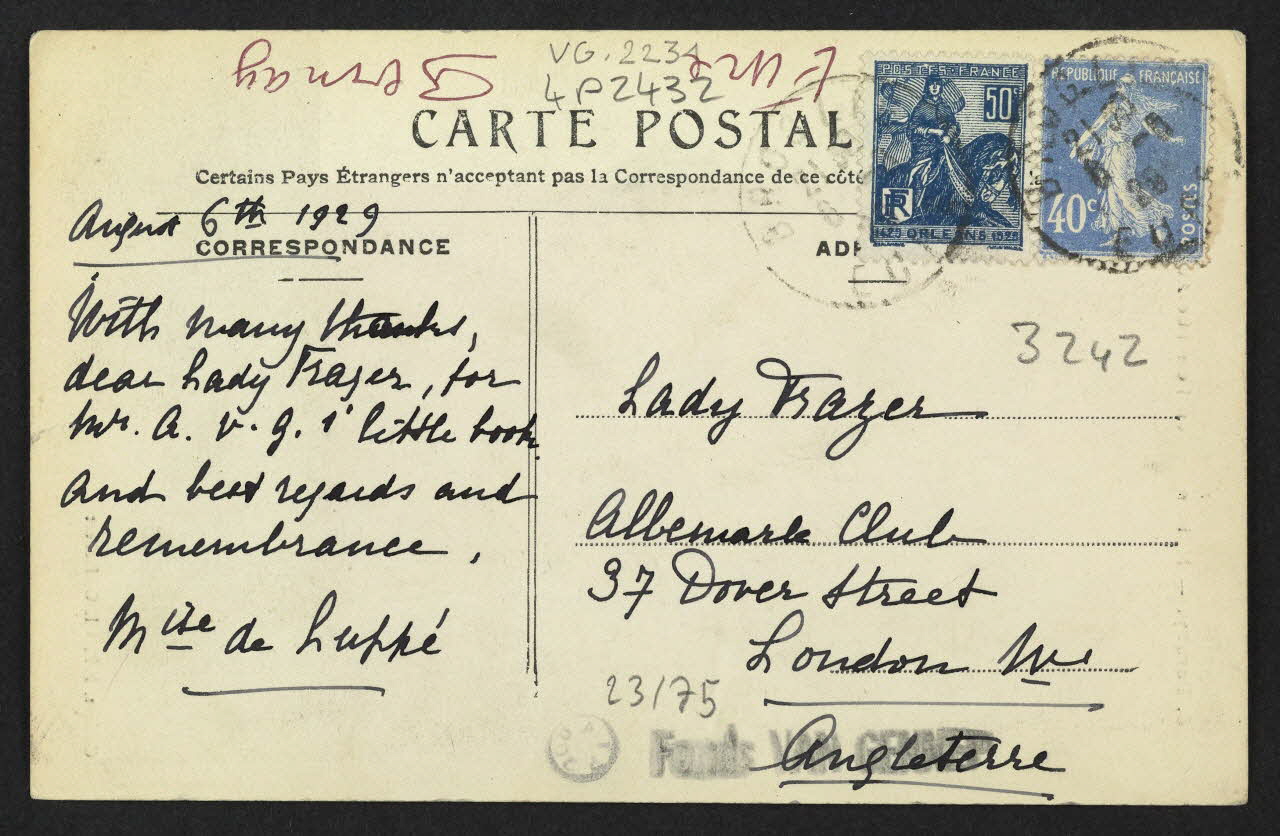 VG. 2234
4P2432
CARTE POSTAL
Certains Pays Étrangers n'acceptant pas la Correspondance de ce côté
August 6th 1929
CORRESPONDANCE
With many thanks,
dear Lady Frazer, for
Mr. A. v. g.s' little book
and best regards and
remembrance,
Mise de Luppé
ADR
POSTES-FRANCE
50c
RF
1429 ORLEANS 1929
REPUBLIQUE FRANÇAISE
40c
POSTES
3242
Lady Frazer
Albemarle Club
37 Dover Street
London W1
Angleterre
23/75
Fonds VAN GENNEP